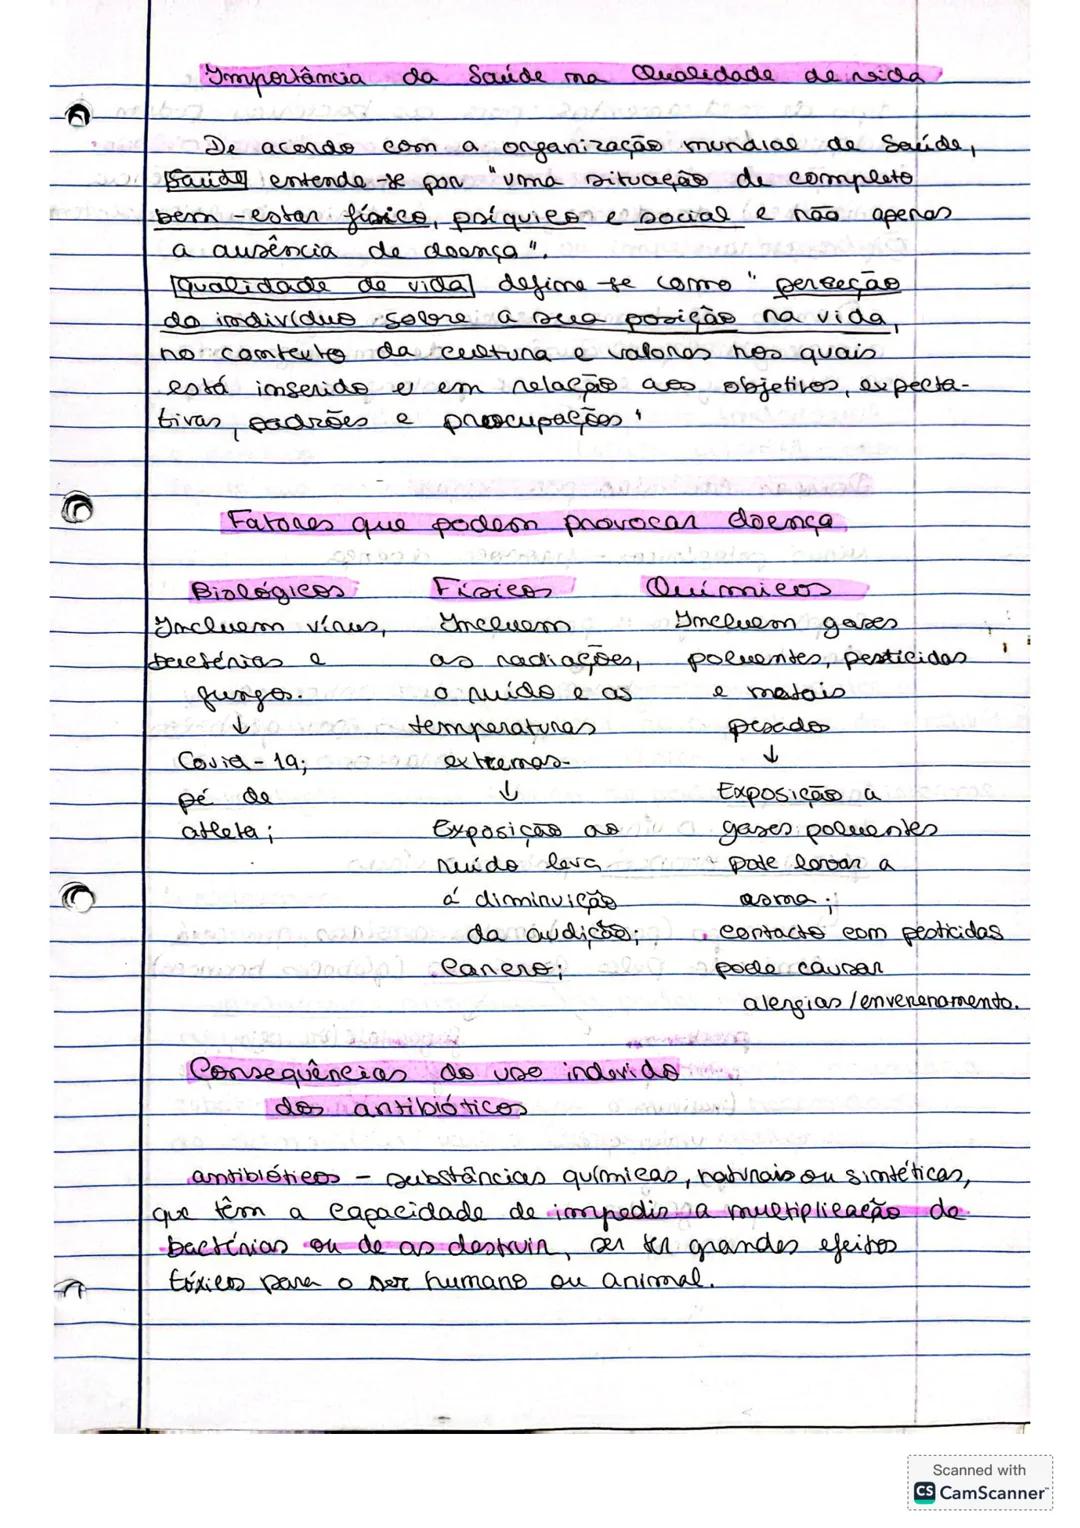 Importância da Saúde na Qualidade de vida
De acordo com a organização mundial de Saúde,
Saúde entende-se por "uma situação de completo
bem-estar físico, psíquico e social e não apenas
a ausência de doença".
Qualidade de vida define-se como "perseção
do indivíduo sobre a sua posição na vida,
no contexto da cultura e valores nos quais
está inserido e em relação aos objetivos, expecta-
tivas, padrões e preocupações"
Fatores que podem provocar doença
Biológicos Físicos Químicos
Incluem vírus, Incluem Incluem gases
bactérias e as radiações, poluentes, pesticidas
fungos. o ruído e as e metais
↓ temperaturas pesados
Covid-19; extremas. ↓
pé de ↓ Exposição a
atleta; Exposição ao gases poluentes
ruído leva pode levar a
á diminuição asma;
da audição; . contacto com pesticidas
Cancro; pode causar
alergias/envenenamento.
Consequências do uso indevido
dos antibióticos
antibióticos - substâncias químicas, naturais ou sintéticas,
que têm a capacidade de impedir a multiplicação de
bactérias ou de as destruir, ser ter grandes efeitos
tóxicos para o ser humano ou animal.
Scanned with
CS CamScanner